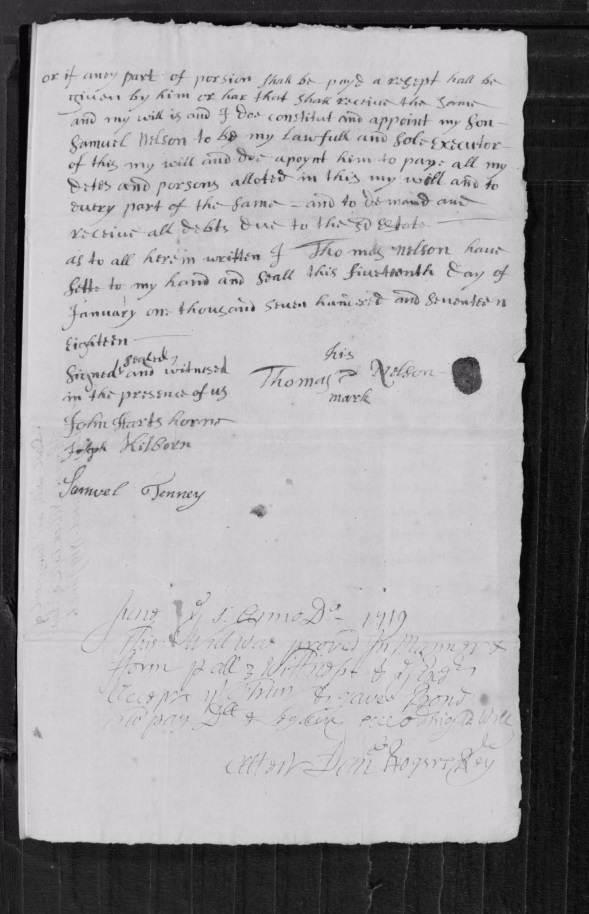 or if aney part of porsion shall be payd a resept hall be
given by him or har that shall receive the same
and my will is and I doe constitut and appoint my Son
Samuel Nelson to be my Lawfull and Sole Executor
of this my will and doe apoynt him to paye all my
detes and porsons alloted in this my will and to
every part of the same - and to demand and
receive all debts due to the sd Estate
as to all herein written I Thomas Nelson have
sette to my hand and seall this fiveteenth day of
January one thousand seven handred and seventeen
Eighteen
Signed sealed and witnesed
in the presence of us
his
Thomas Nelson
mark
John Harts horne
Joseph Kilborn
Samuel Tenney
June ye 5. Anno Do. 1719
This Will was proved In Manner &
form p all 3 Wittnesses & ye
Accepts ye & gave Bond
to pay & Will
attest Dan Rogers Reg